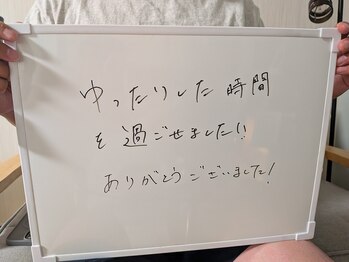 ゆったりした時間
を過ごせました!!
ありがとうございました!